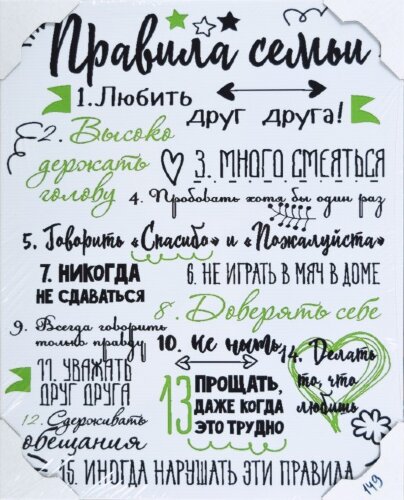 Правила семьи
1. Любить
друг друга!
2. Высоко
держать
голову
3. МНОГО СМЕЯТЬСЯ
4. Пробовать хотя бы один раз
5. Говорить «Спасибо» и «Пожалуйста»
7. НИКОГДА
НЕ СДАВАТЬСЯ
6. НЕ ИГРАТЬ В МЯЧ В ДОМЕ
8. Доверять себе
9. Всегда говорить
только правду
10. не ныть
11. УВАЖАТЬ
ДРУГ ДРУГА
12. Сдерживать
обещания
13 ПРОЩАТЬ,
ДАЖЕ КОГДА
ЭТО ТРУДНО
14. Делать
то, что
любишь
15. ИНОГДА НАРУШАТЬ ЭТИ ПРАВИЛА
149